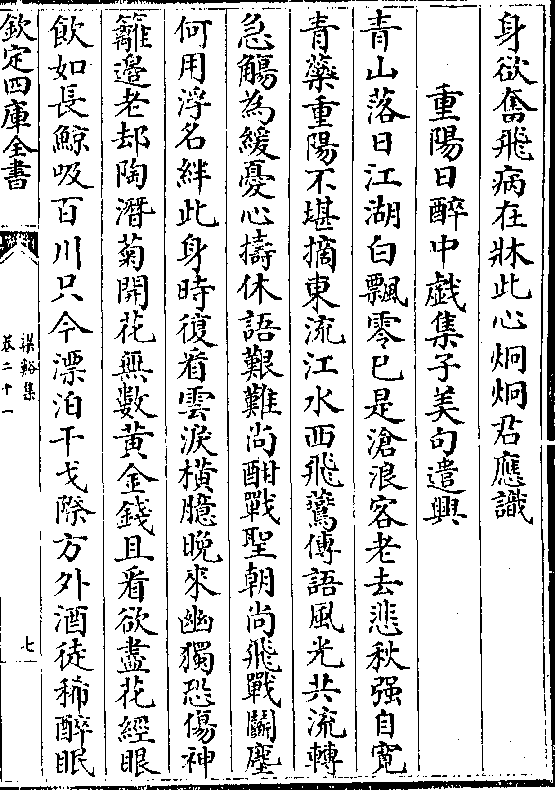 身欲奮飛病在牀此心炯炯君應識
重陽日醉中戯集子美句遣興
青山落日江湖白飄零已是滄浪客老去悲秋强自寛
青蘂重陽不堪摘東流江水西飛鷰傳語風光共流轉
急觴為緩憂心擣休語艱難尚酣戰聖朝尚飛戰鬭塵
何用浮名絆此身時復看雲淚横臆晩來幽獨恐傷神
籬邊老却陶潛菊開花無數黄金錢且看欲盡花經眼
飲如長鯨吸百川只今漂泊干戈際方外酒徒稀醉眠
欽定四庫全書
梁谿集
卷二十一
七